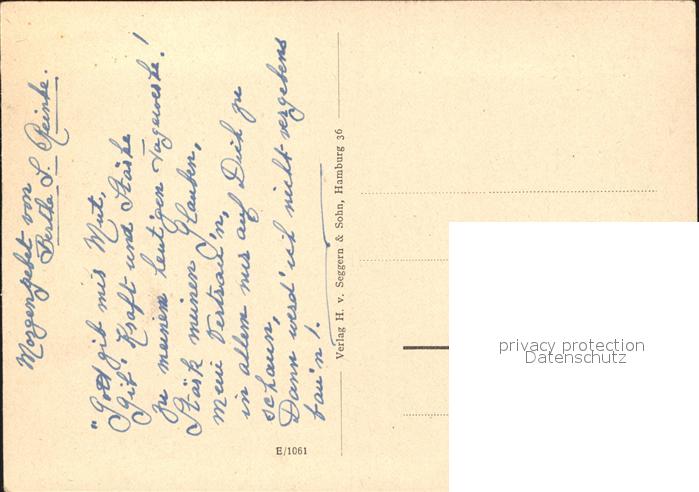 Morgengebet von
Bertha S. Reinke.
"Gott gib mir Mut,
Gib' Kraft und Stärke
zu meinem heut'gen Tagewerke!
Stärk meinen Glauben,
mein Vertrau'n,
in allem nur auf Dich zu
schaun,
Dann werd' ich nicht vergebens
bau'n!.
E/1061
Verlag H. v. Seggern & Sohn, Hamburg 36
privacy protection
Datenschutz